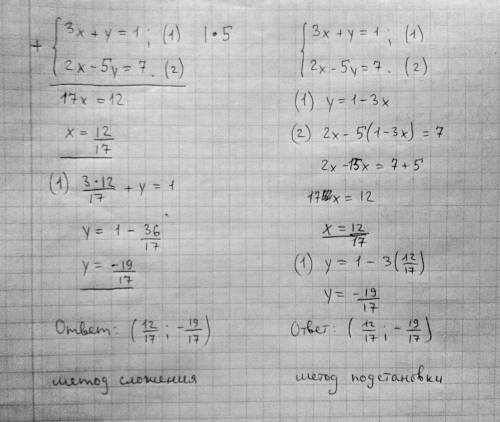 + { 3x + y = 1 ; (1) | · 5
2x - 5y = 7 . (2)
17x = 12
x = 12/17
(1) 3·12/17 + y = 1
y = 1 - 36/17
y = -19/17
Ответ: (12/17 ; -19/17)
метод сложения
{ 3x + y = 1 ; (1)
2x - 5y = 7 . (2)
(1) y = 1 - 3x
(2) 2x - 5(1 - 3x) = 7
2x - 15x = 7 + 5
17x = 12
x = 12/17
(1) y = 1 - 3(12/17)
y = -19/17
Ответ: (12/17 ; -19/17)
метод подстановки